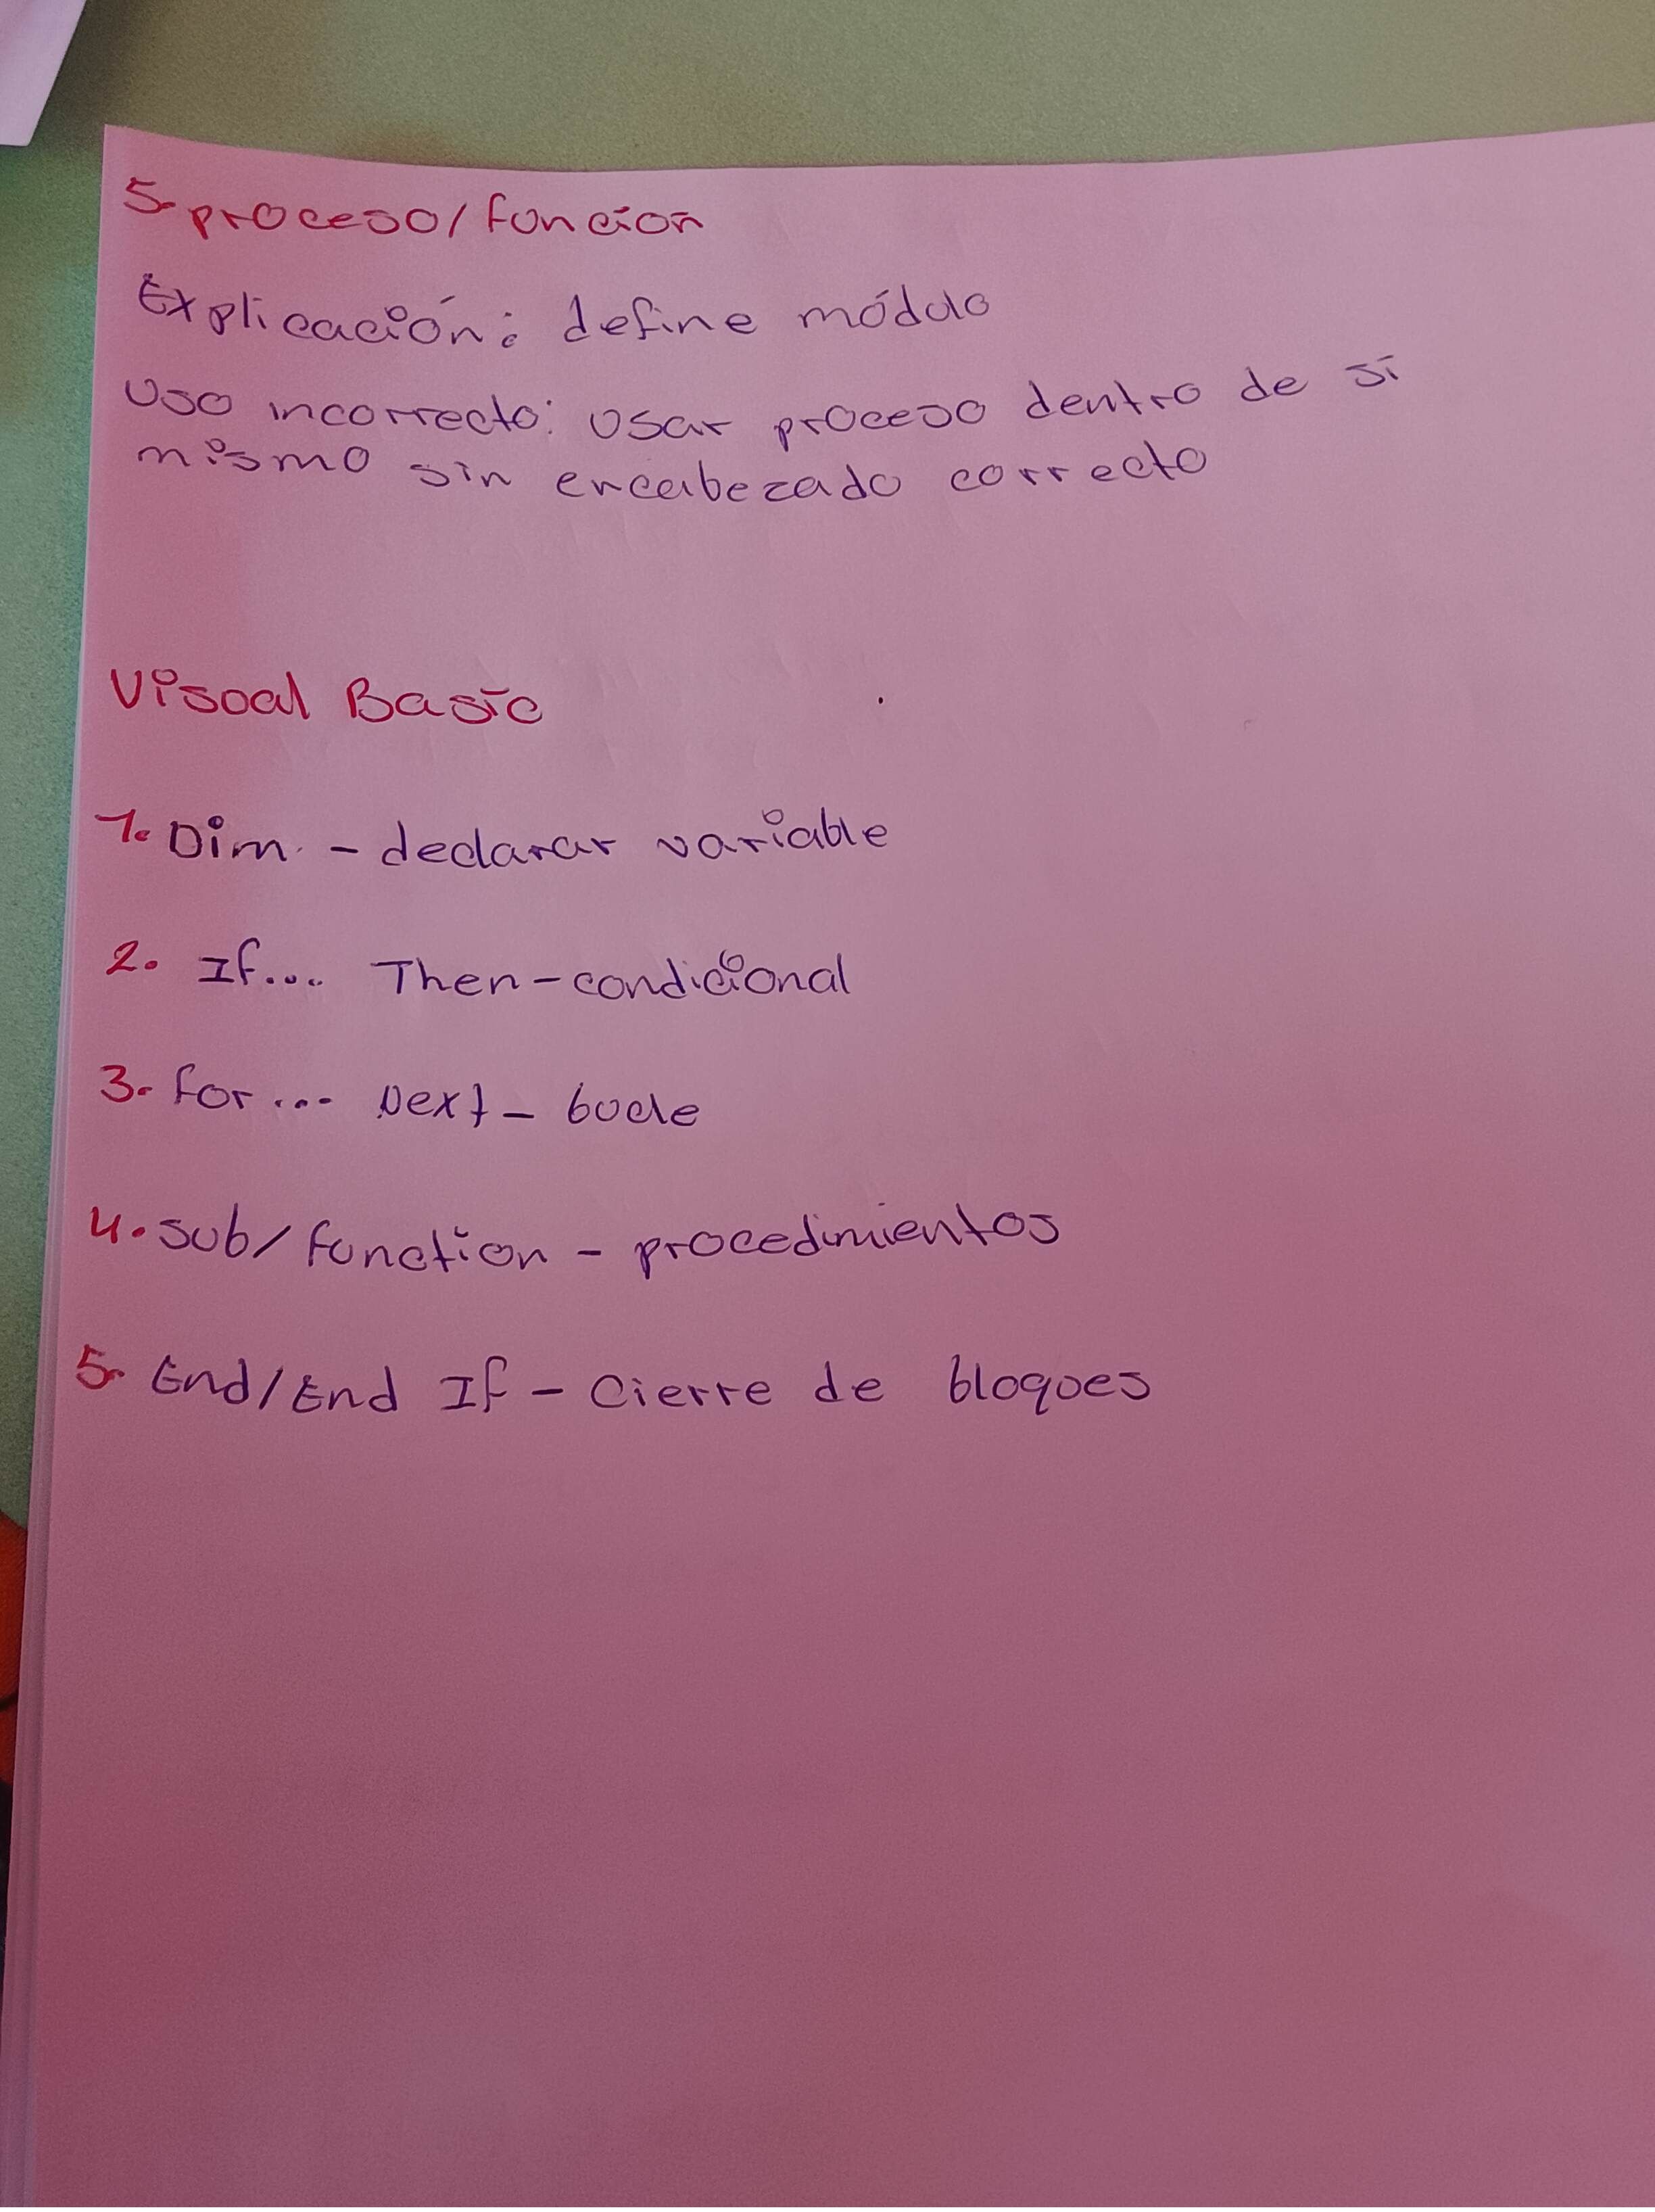 5. proceso/función
Explicación: define módulo
Uso incorrecto: usar proceso dentro de sí
mismo sin encabezado correcto
Visual Basic
1. Dim - declarar variable
2. If... Then - condicional
3. for ... Next - bucle
4. sub/function - procedimientos
5. End/End If - Cierre de bloques